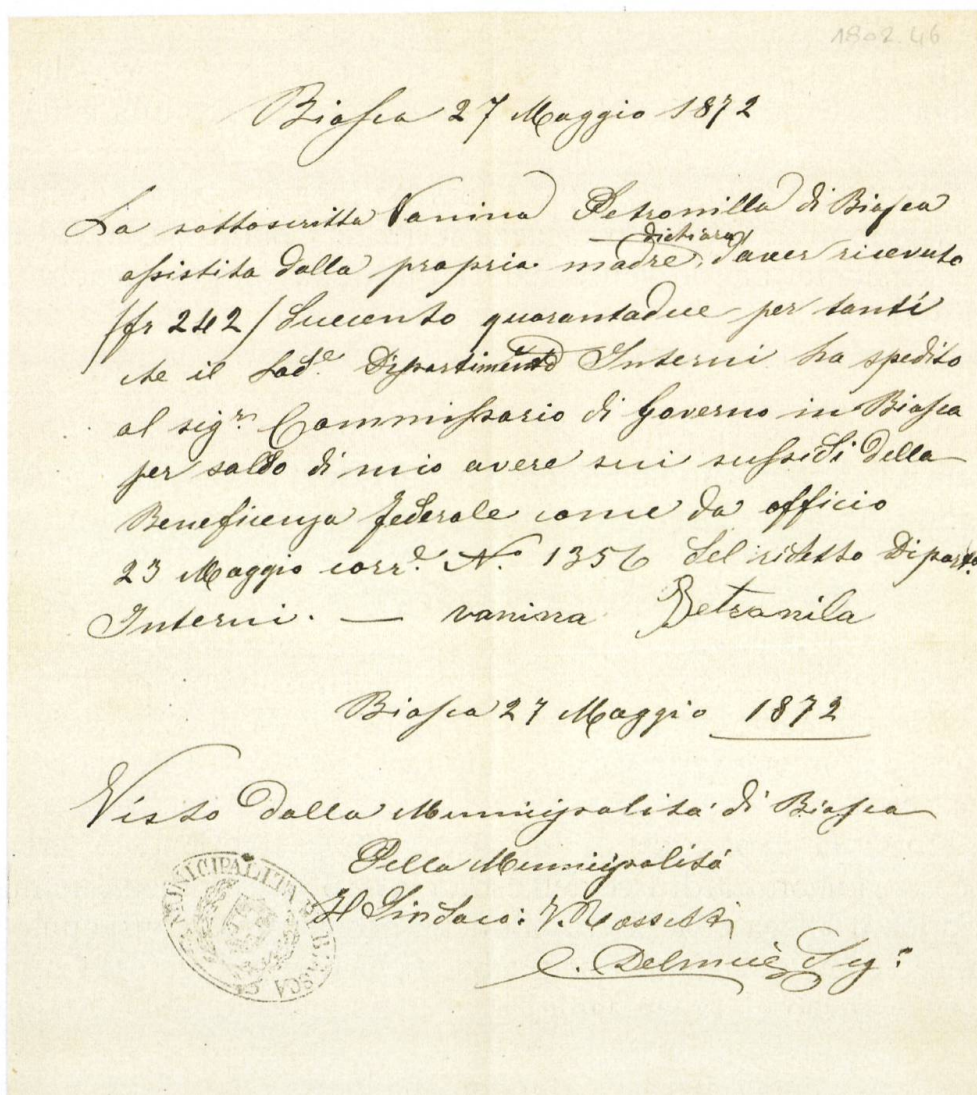 1802.46
Biasca 27 Maggio 1872
La sottoscritta Vanina Petronilla di Biasca
dichiara
assistita dalla propria madre, d'aver ricevuto
/fr 242/ duecento quarantadue per tanti
che il Lod.e Dipartimento Interni ha spedito
al sig.r Commissario di Governo in Biasca
per saldo di mio avere sui sussidi della
Beneficenza federale come da officio
23 Maggio corr.e N.o 1356 del ridetto Dipart.o
Interni. — vanina Petronila
Biasca 27 Maggio 1872
Visto dalla Municipalità di Biasca
Pella Municipalità
Il Sindaco: V. Rossetti
C. Delmuè Seg.
MUNICIPALITÀ DI BIASCA